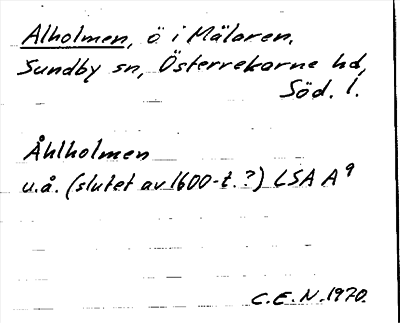 Alholmen, ö i Mälaren.
Sundby sn, Österrekarne hd,
Söd. l.
Åhlholmen
u.å. (slutet av 1600-t.?) LSA A⁹
C.E.N. 1970.